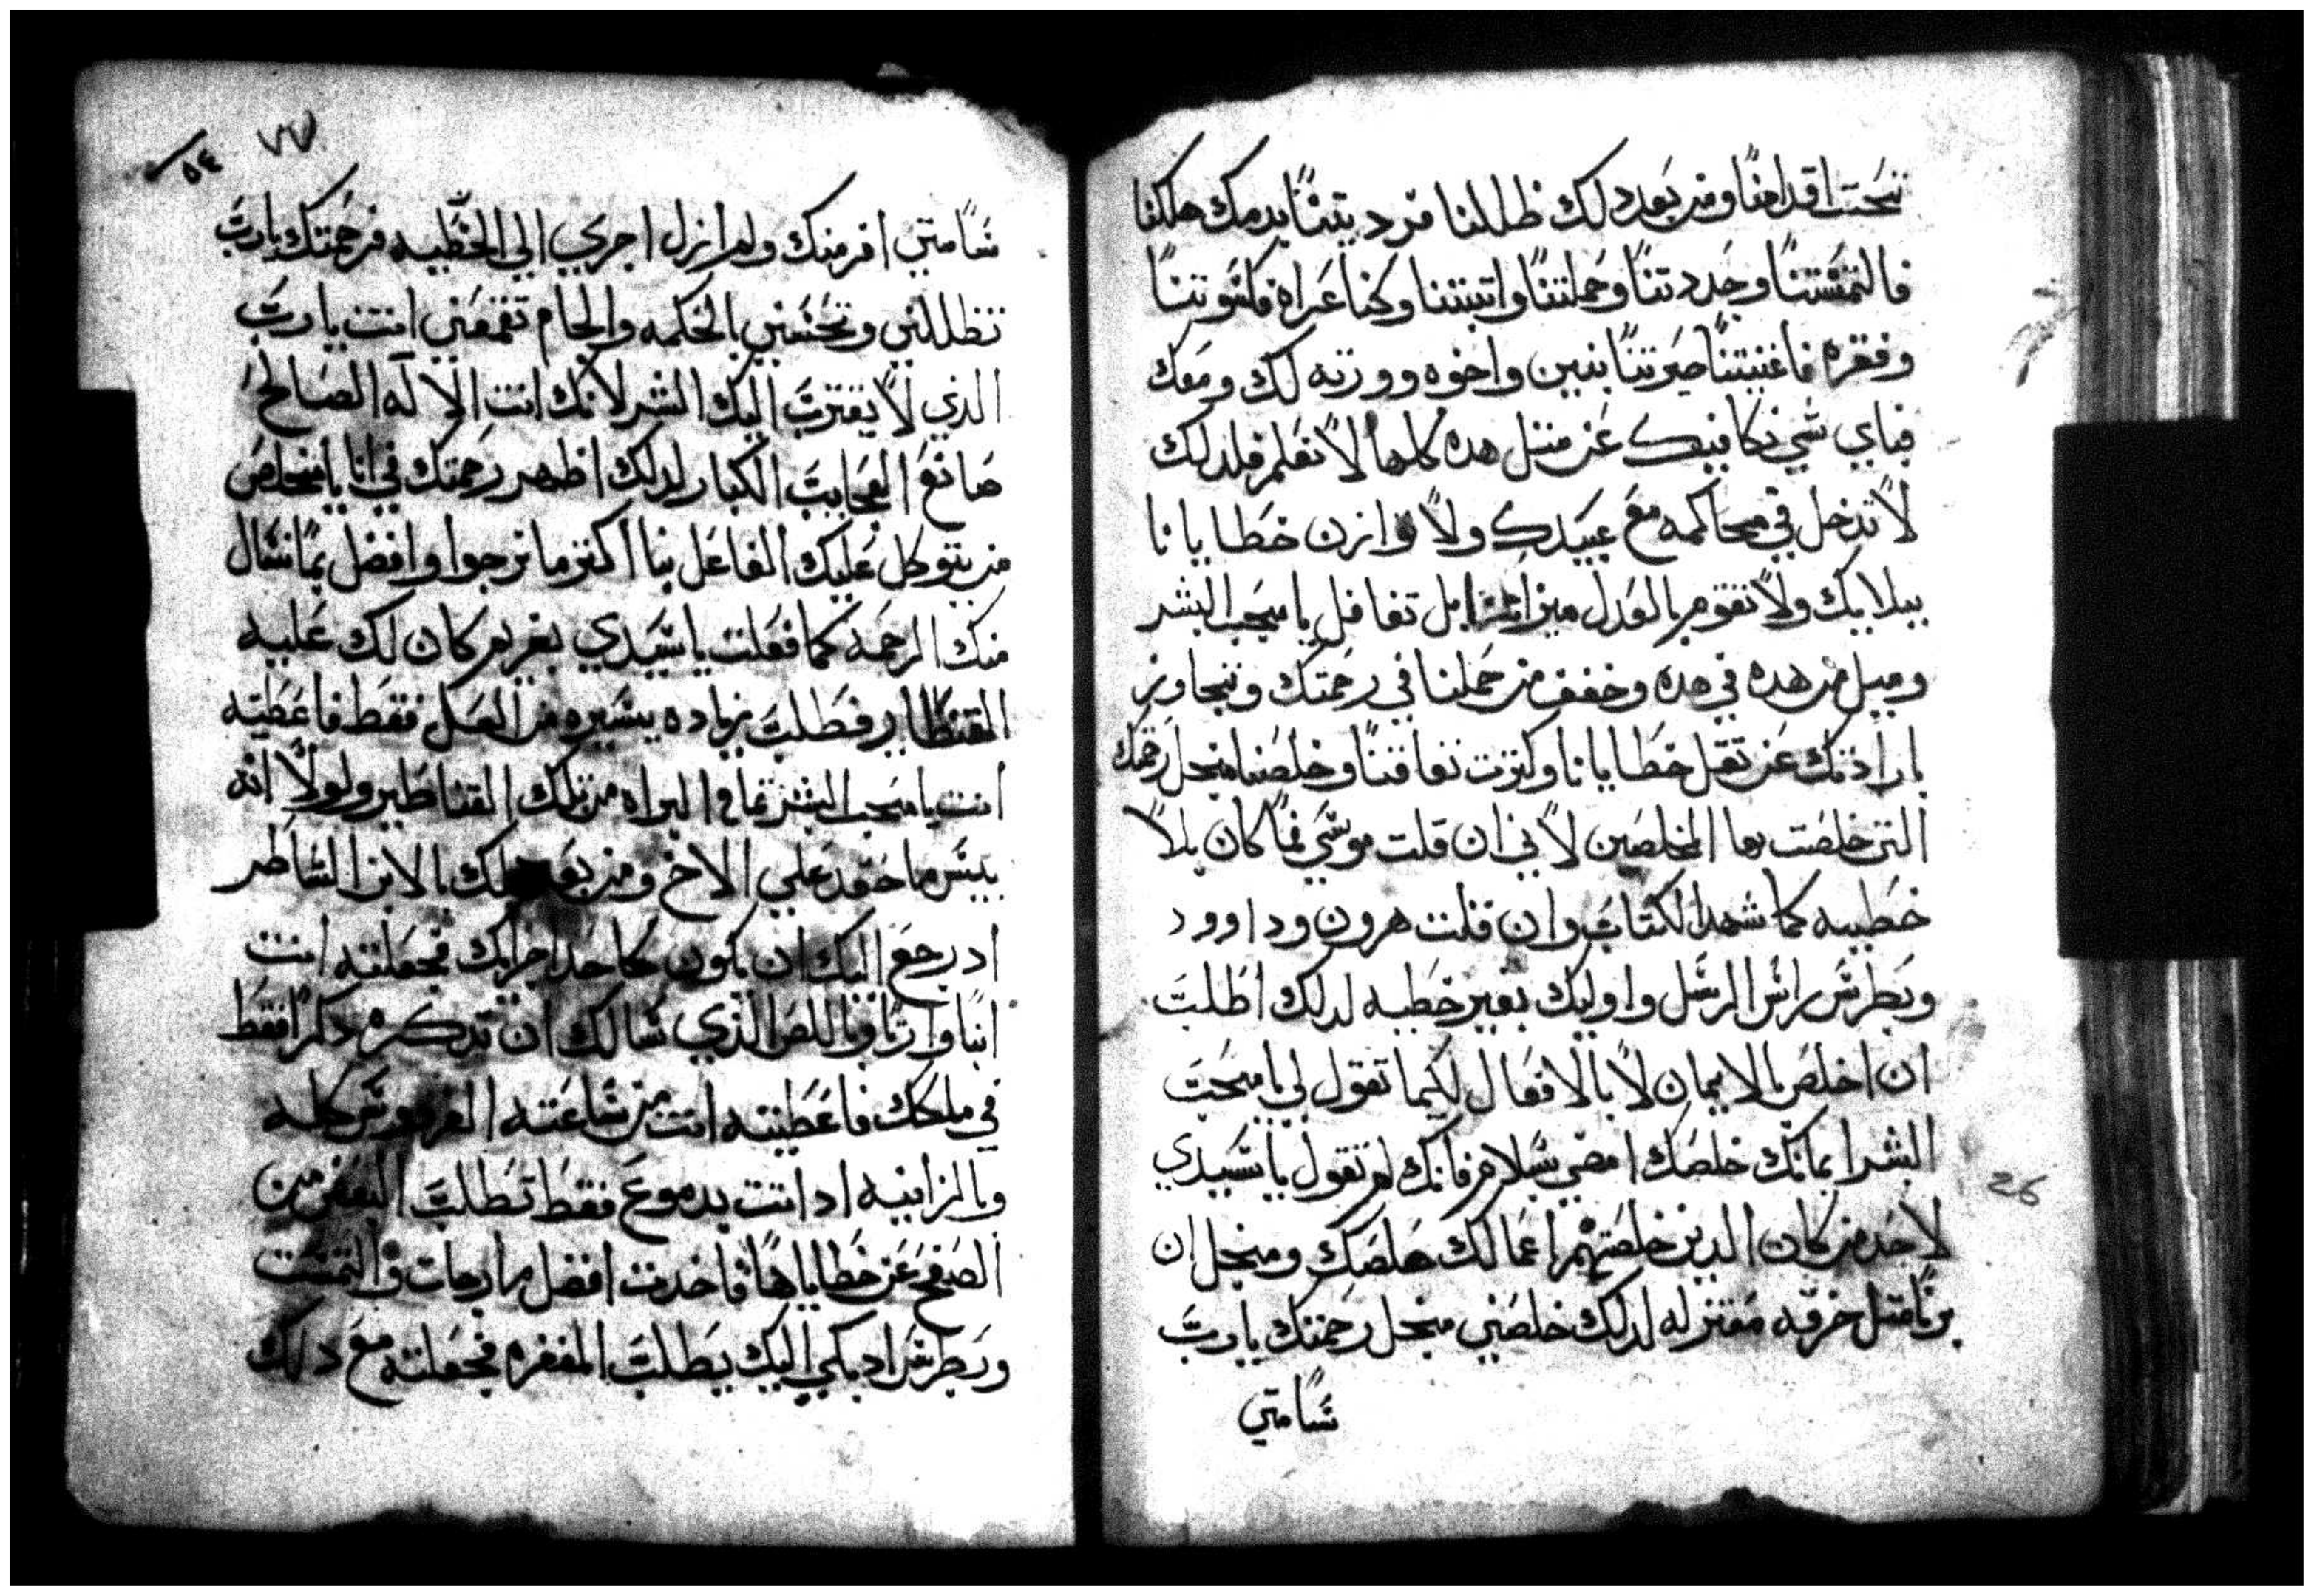 تحت اقدامنا ومن بعد دلك ظللنا فرديتنا بدمك هلكنا
فالتمستنا وجددتنا وحملتنا واتيتنا وكنا عراه فكسوتنا
وفقره فاغنيتنا صيرتنا بنين واخوه وورته لك ومعك
فباي شي نكافيك عن متل هده كلها لا نعلم فلدلك
لا تدخل في محاكمه مع عبيدك ولا توازن خطايانا
ببلاييك ولا تقوم بالعدل ميزاننا بل تغافل يا محب البشر
وميل من هده في هده وخفف من حملنا في رحمتك وتجاوز
بارادتك عن تقل خطايانا وكترت نفاقنا وخلصنا منجل رحمتك
التي خلصت بها المخلصين لاني ان قلت موسي فما كان بلا
خطييه كما شهد الكتاب وان قلت هرون وداوود
وبطرس راس الرسل واوليك بغير خطيه لدلك اطلب
ان اخلص بالايمان لا بالافعال لكيما تقول لي يا محب
البشر ايمانك خلصك امضي بسلام فانك لم تقول يا سيدي
لاحد من كان الدين خلصتهم اعمالك خلصك ومنجل ان
برنا متل خرقه معتزله لدلك خلصني منجل رحمتك يا رب
سامتي
٧٧
٥٤
سامتي افر منك ولم ازل اجري الي الخطييه فرحمتك يا رب
تظللني وتحسني بالحكمه والجام تقمعني انت يا رب
الذي لا يقترب اليك الشر لانك انت الالاه الصالح
صانع العجايب الكبار لدلك اظهر رحمتك في انا يا مخلص
من يتوكل عليك الفاعل بنا اكتر ما نرجوا وافضل مما نسال
منك الرحمه كما فعلت يا سيدي بغريم كان لك عليه
القنطار فطلب زياده يسيره من العمل فقط فاعطيته
انت يا محب البشر تمام البراه من تلك القناطير ولولا انه
بيس ما حقد علي الاخ ومن بعد دلك بالابن الشاطر
اد رجع اليك ان يكون كاحد اجرايك فجعلته انت
ابنا وارتا وباللص الذي سالك ان تدكره دكرا فقط
في ملكك فاعطيته انت من ساعته الفردوس كله
وبالزانيه اد اتت بدموع فقط تطلب البعض من
الصفح عن خطاياها فاخدت افضل مارجات والتمست
وبطرس اد بكي اليك يطلب المغفره فجعلته مع دلك
26